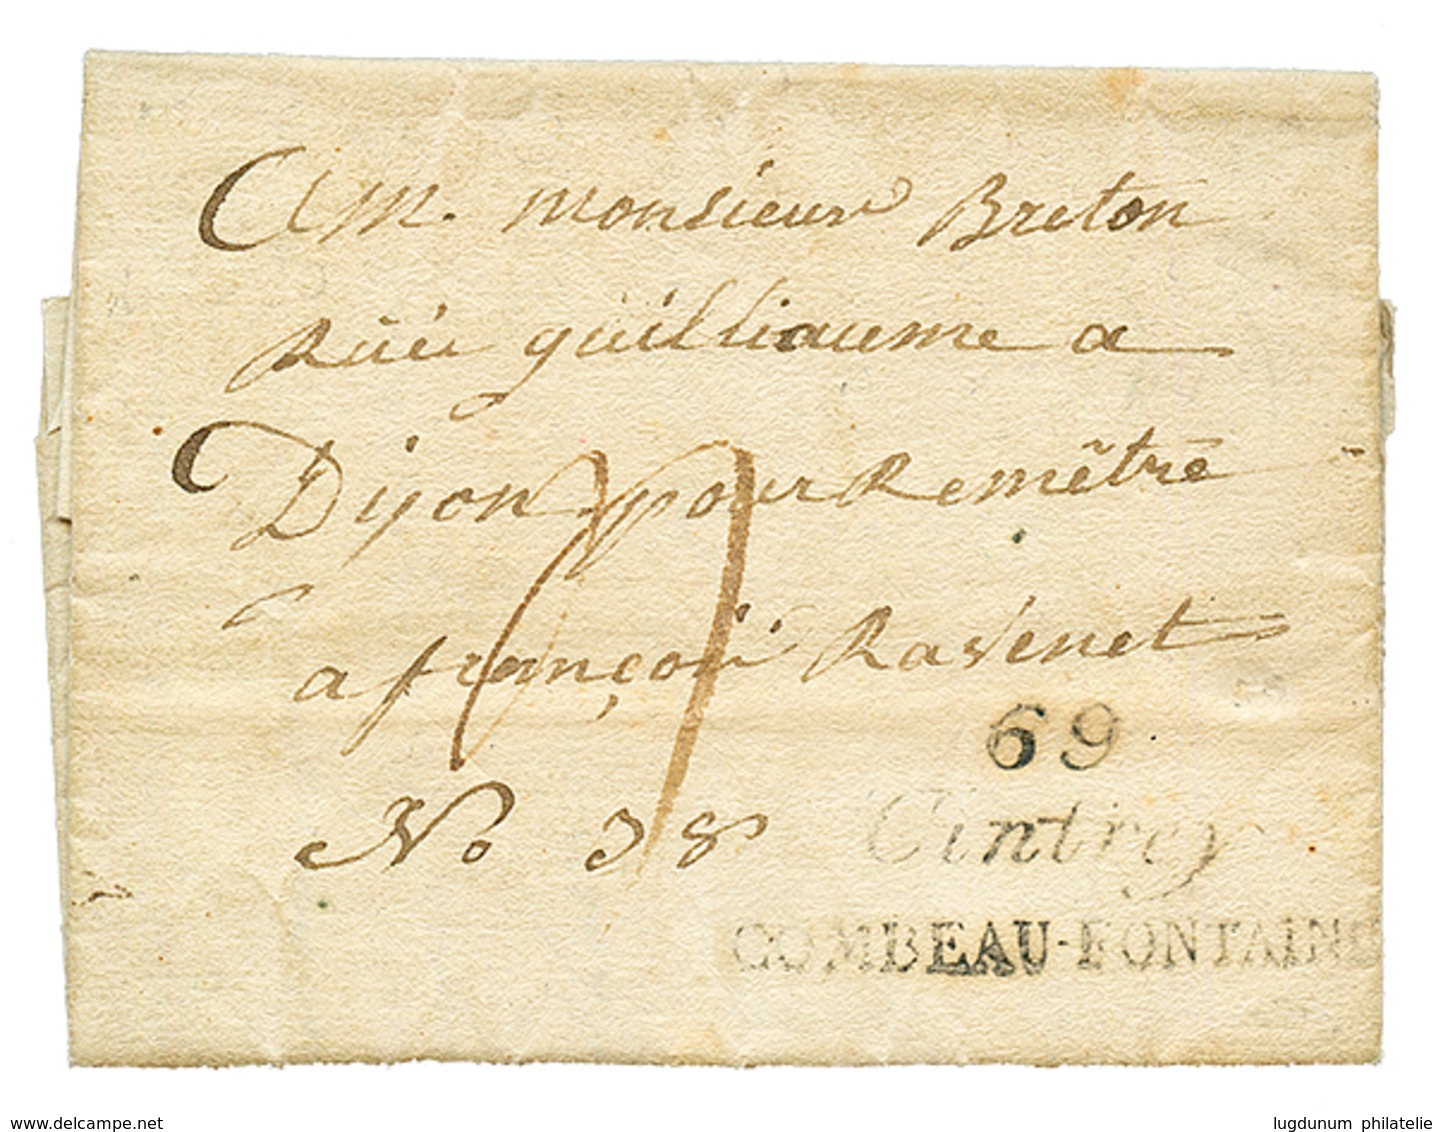 A M. monsieur Breton
Rüée guilliaume a
Dijon pour Remêtre
a françois Ravenet
No 38
69
Cintrey
COMBEAU-FONTAINE
www.delcampe.net
lugdunum philatelie